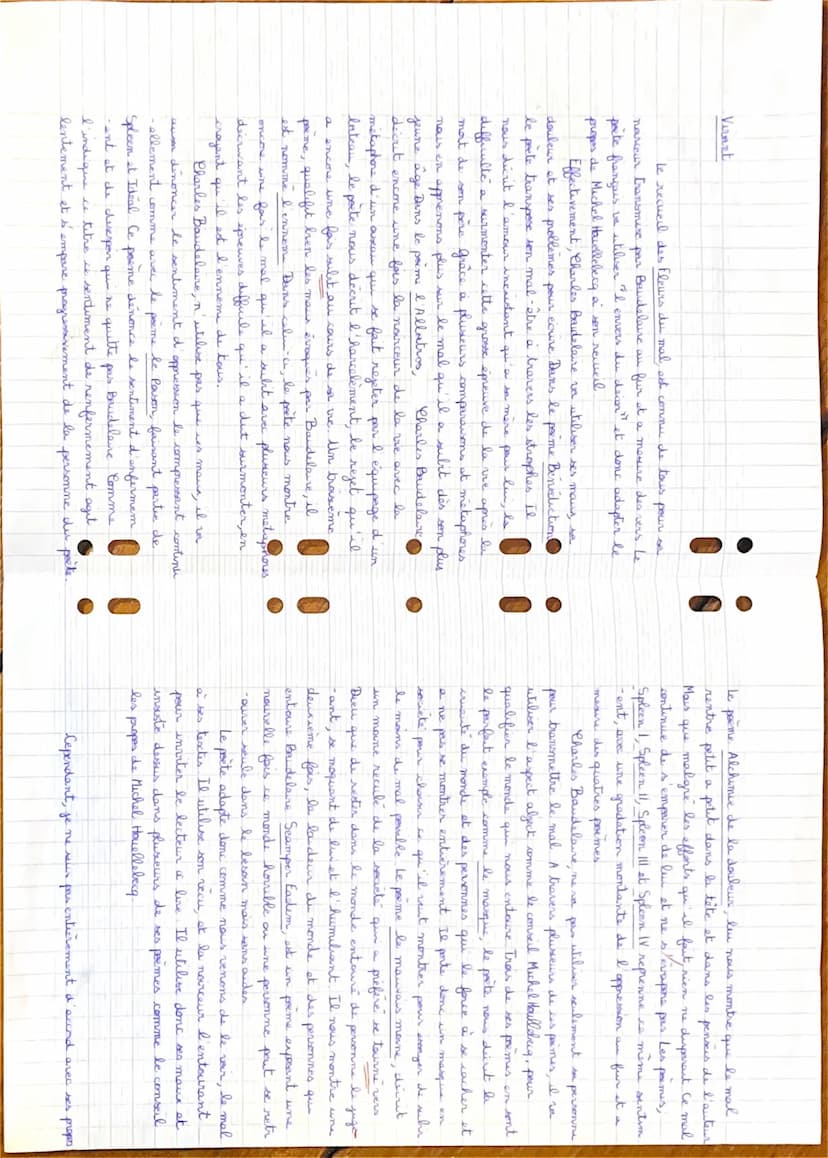 Virart
Le recueil des Fleurs du mal, est connu de tous pour sa
noirceur transmise par Baudelaire au fur et a mesure des vers. Le
poète français va utiliser "l'envers du decor" et donc adapter le
propos de Michel Houellebecq à son recueil.
Effectivement, Charles Baudelaire va utiliser ses maux, sa
douleur et ses problèmes pour écrire. Dans le poème Bénédiction
le poète transpose son mal-être à travers les strophes. Il
nous décrit l'amour inexistant qu'a sa mère pour lui, la
difficulté a surmonter cette grosse épreuve de la vie après la
mort de son père. Grâce à plusieurs comparaisons et métaphores
nous en apprenons plus sur le mal qu'il a subit dès son plus
jeune âge. Dans le poème l'Albatros, Charles Baudelaire
décrit encore une fois la noirceur de la vie avec la
métaphore d'un oiseau qui se fait rejeter par l'équipage d'un
bateau, le poète nous décrit l'harcelèment, le rejet qu'il
a encore une fois subit au cours de sa vie. Un troisème
poème, qualifit bien les maux évoqués par Baudelaire, il
est nommé l'ennemi. Dans celui-ci, le poète nous montre
encore une fois le mal qu'il a subit avec plusieurs métaphores
décrivant les épreuves difficile qu'il a dut surmonter, en
croyant qu'il est l'ennemi de tous.
Charles Baudelaire, n'utilise pas que ces maux, il va
aussi dénoncer le sentiment d'oppression le compressant continu
-ellement comme avec le poème le Possédé, faisant partie de
Spleen et Idéal. Ce poème dénonce le sentiment d'enfermem
-ent et de desespoir qui ne quitte pas Baudelaire. Comme
l'indique ce titre ce sentiment de renfermement agit
lentement et s'empare progressivement de la personne du poète.
Le poème Alchimie de la douleur, lui nous montre que le mal
rentre petit a petit dans la tête et dans les pensées de l'auteur
Mais que malgré les efforts qu'il fait rien ne disparait. Ce mal
continue de s'emparer de lui et ne s'évapore pas. Les poèmes,
Spleen I, Spleen II, Spleen III et Spleen IV reprenne ce même sentim
-ent, avec une gradation montante de l'oppression au fur et a
mesure des quatres poèmes.
Charles Baudelaire, ne va pas utiliser seulement sa personne
pour transmettre le mal. A travers plusieurs de ces poèmes, il va
utiliser l'aspect abject comme le conseil Michel Houellebecq, pour
qualifier le monde qui nous entoure. Trois de ses poèmes en sont
le parfait exemple comme le masque, le poète nous décrit la
cruauté du monde et des personnes qui le force à se cacher et
a ne pas se montrer entièrement. Il porte donc un masque en
société pour choisir ce qu'il veut montrer pour essayer de subir
le moins de mal possible. Le poème le mauvais moine, décrit
un moine reculé de la société qui a préféré se tourné vers
Dieu que de rester dans le monde entouré de personne le juge-
-ant, se moquant de lui et l'humiliant. Il nous montre une
deuxième fois, la laideur du monde et des personnes qui
entoure Baudelaire. Semper Eadem, est un poème exposant une
nouvelle fois ce monde horrible ou une personne peut se retr
-ouver seule dans le besoin mais sans aides.
Le poète adapte donc comme nous venons de le voir, le mal
à ses textes. Il utilise son vécu, et la noirceur l'entourant
pour inviter le lecteur a lire. Il utilise donc ses maux et
insiste dessus dans plusieurs de ses poèmes comme le conseil
les propos de Michel Houellebecq.
Cependant, je ne suis pas entièrement d'accord avec ses propos